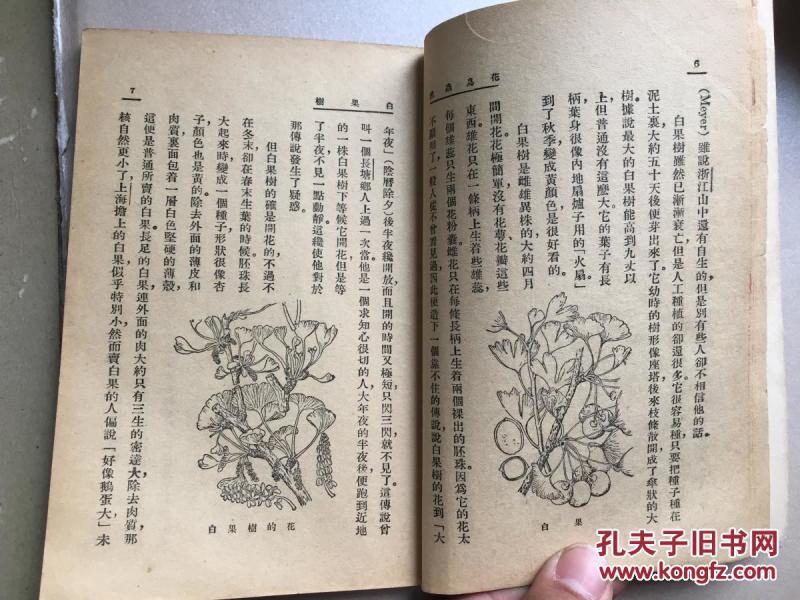 6
花鳥蟲魚
（Meyer）雖說浙江山中還有自生的，但是別有些人卻不相信他的話。
白果樹雖然已漸漸衰亡但是人工種植的卻還很多，它很容易種，只要把種子種在
泥土裏大約五十天後便芽出來了。它幼時的樹形像座塔後來枝條散開成了傘狀的大
樹據說最大的白果樹能高到九丈以
上但普通沒有這麼大。它的葉子有長
柄葉身很像內地扇爐子用的「火扇」
到了秋季變成黃顏色是很好看的。
白果樹是雌雄異株的大約四月
間開花，花極簡單沒有花萼花瓣這些
東西雄花只在一條柄上生着些雄蕊，
每個雄蕊只生兩個花粉囊雌花只在每條長柄上生着兩個裸出的胚珠因爲它的花太
不顯明了，一般人從不曾看見過因此便造下一個靠不住的傳說說白果樹的花到「大
白果
白果樹
7
年夜」（陰曆除夕）後半夜纔開放而且開的時間又極短，只閃三閃就不見了。這傳說曾
叫一個長塘鄉人上過一次當他是一個求知心很切的人大年夜的半夜後便跑到近地
的一株白果樹下等候它開花但是等
了半夜不見一點動靜這纔使他對於
那傳說發生了疑惑。
但白果樹的確是開花的不過不
在冬末卻在春末生葉的時候。胚珠長
大起來時變成一個種子形狀很像杏
子顏色也是黃的。除去外面的薄皮和
肉質裏面包着一層白色堅硬的薄殼
這便是普通所賣的白果。長足的白果連外面的肉大約只有三生的密達大除去肉質，那
核自然更小了上海擔上的白果似乎特別小然而賣白果的人偏說「好像鵝蛋大」未
白果樹的花
孔夫子旧书网
www.kongfz.com